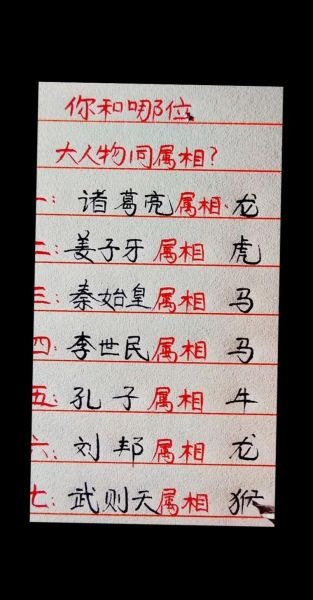 你和哪位
大人物同属相?
一: 诸葛亮属相: 龙
二: 姜子牙属相 虎
三: 秦始皇属相 马
四: 李世民属相 马
五: 孔子属相 牛
六: 刘邦属相 龙
七: 武则天属相 猴